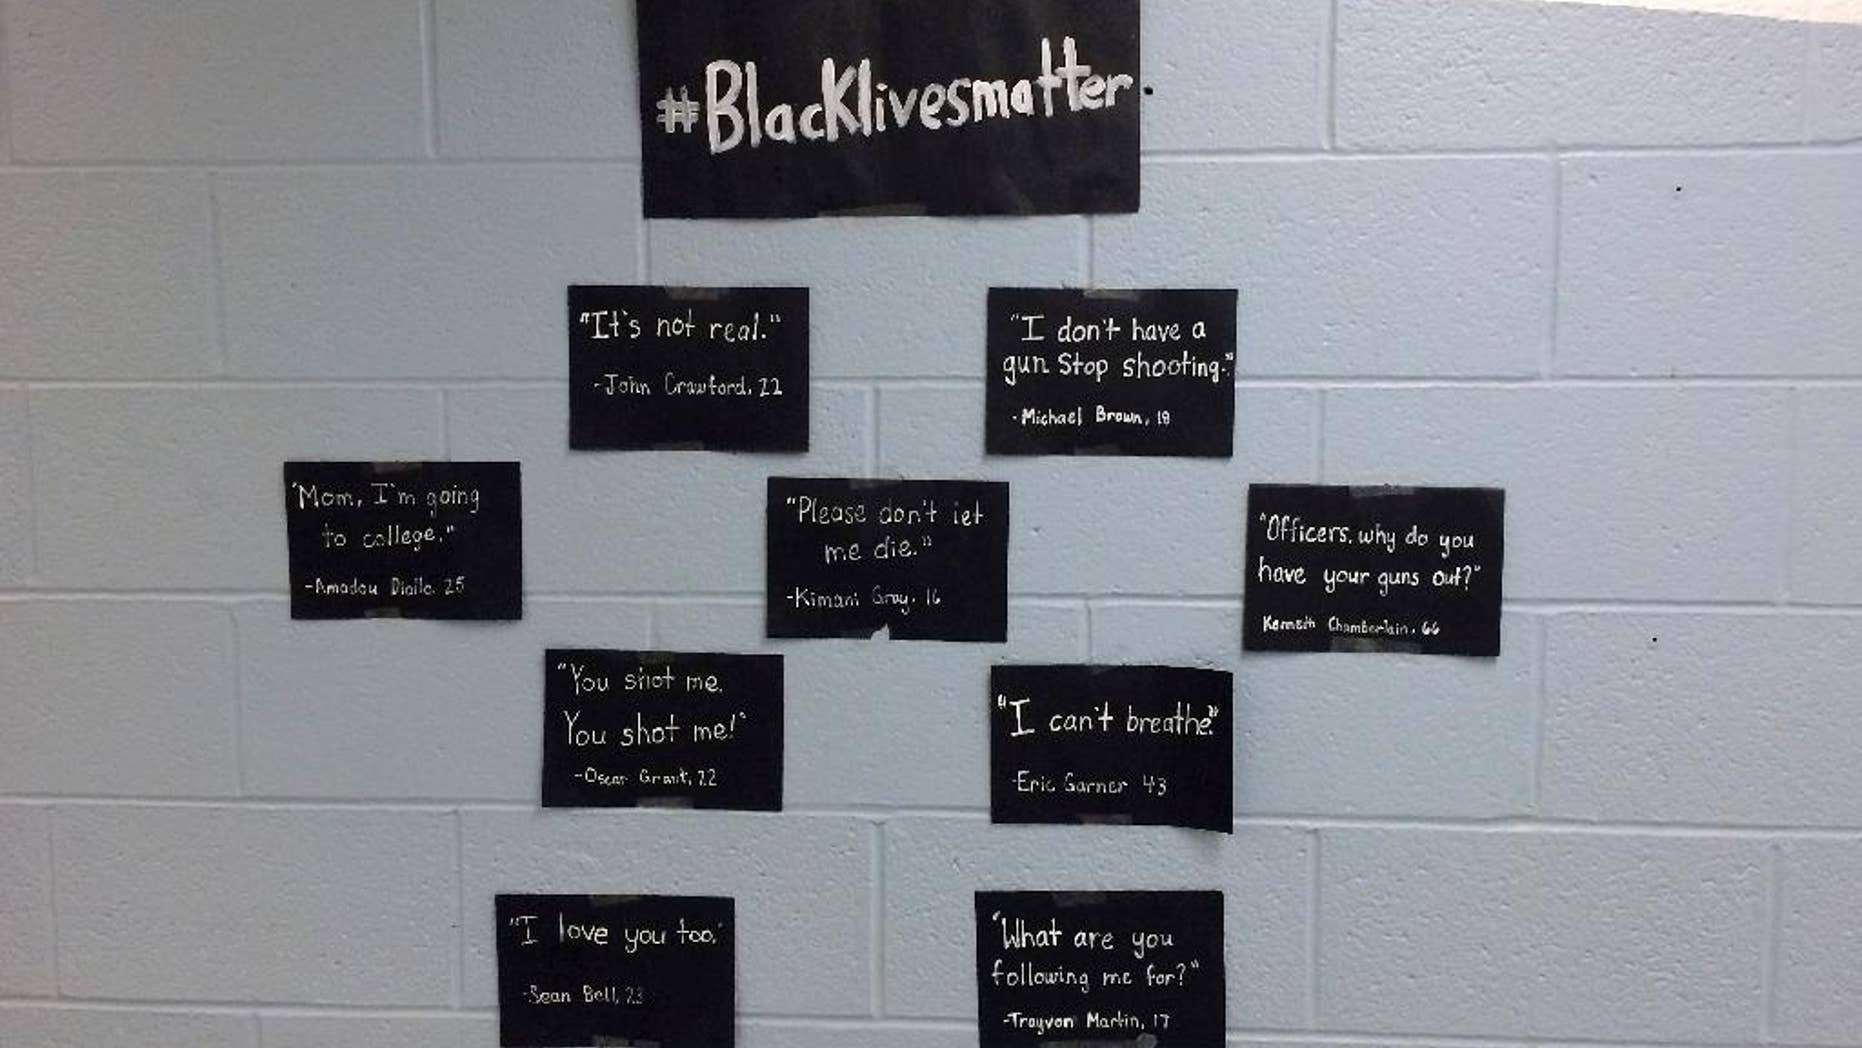 #Blacklivesmatter
"It's not real."
-John Crawford, 22
"I don't have a
gun Stop shooting."
-Michael Brown, 18
"Mom, I'm going
to college."
-Amadou Diallo, 25
"Please don't let
me die."
-Kimani Gray, 16
"Officers, why do you
have your guns out?"
Kenneth Chamberlain, 66
"You shot me.
You shot me!"
-Oscar Grant, 22
"I can't breathe"
-Eric Garner 43
"I love you too."
-Sean Bell, 23
"What are you
following me for?"
-Trayvon Martin, 17